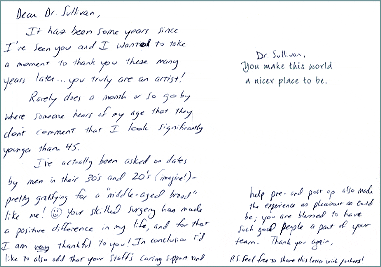 Dear Dr. Sullivan,
It has been some years since
I've seen you and I wanted to take
a moment to thank you these many
years later... you truly are an artist!
Rarely does a month or so go by
where someone hears of my age that they
don't comment that I look significantly
younger than 45.
I've actually been asked on dates
by men in their 30's and 20's (imagine!)-
pretty gratifying for a "middle-aged broad"
like me! Your skilled surgery has made
a positive difference in my life, and for that
I am very thankful to you! In conclusion I'd
like to also add that your staff's caring support and
Dr Sullivan,
You make this world
a nicer place to be.
help pre- and post op also made
the experience as pleasant as could
be; you are blessed to have
such good people a part of your
team. Thank you again,
P.S Feel free to share this letter with